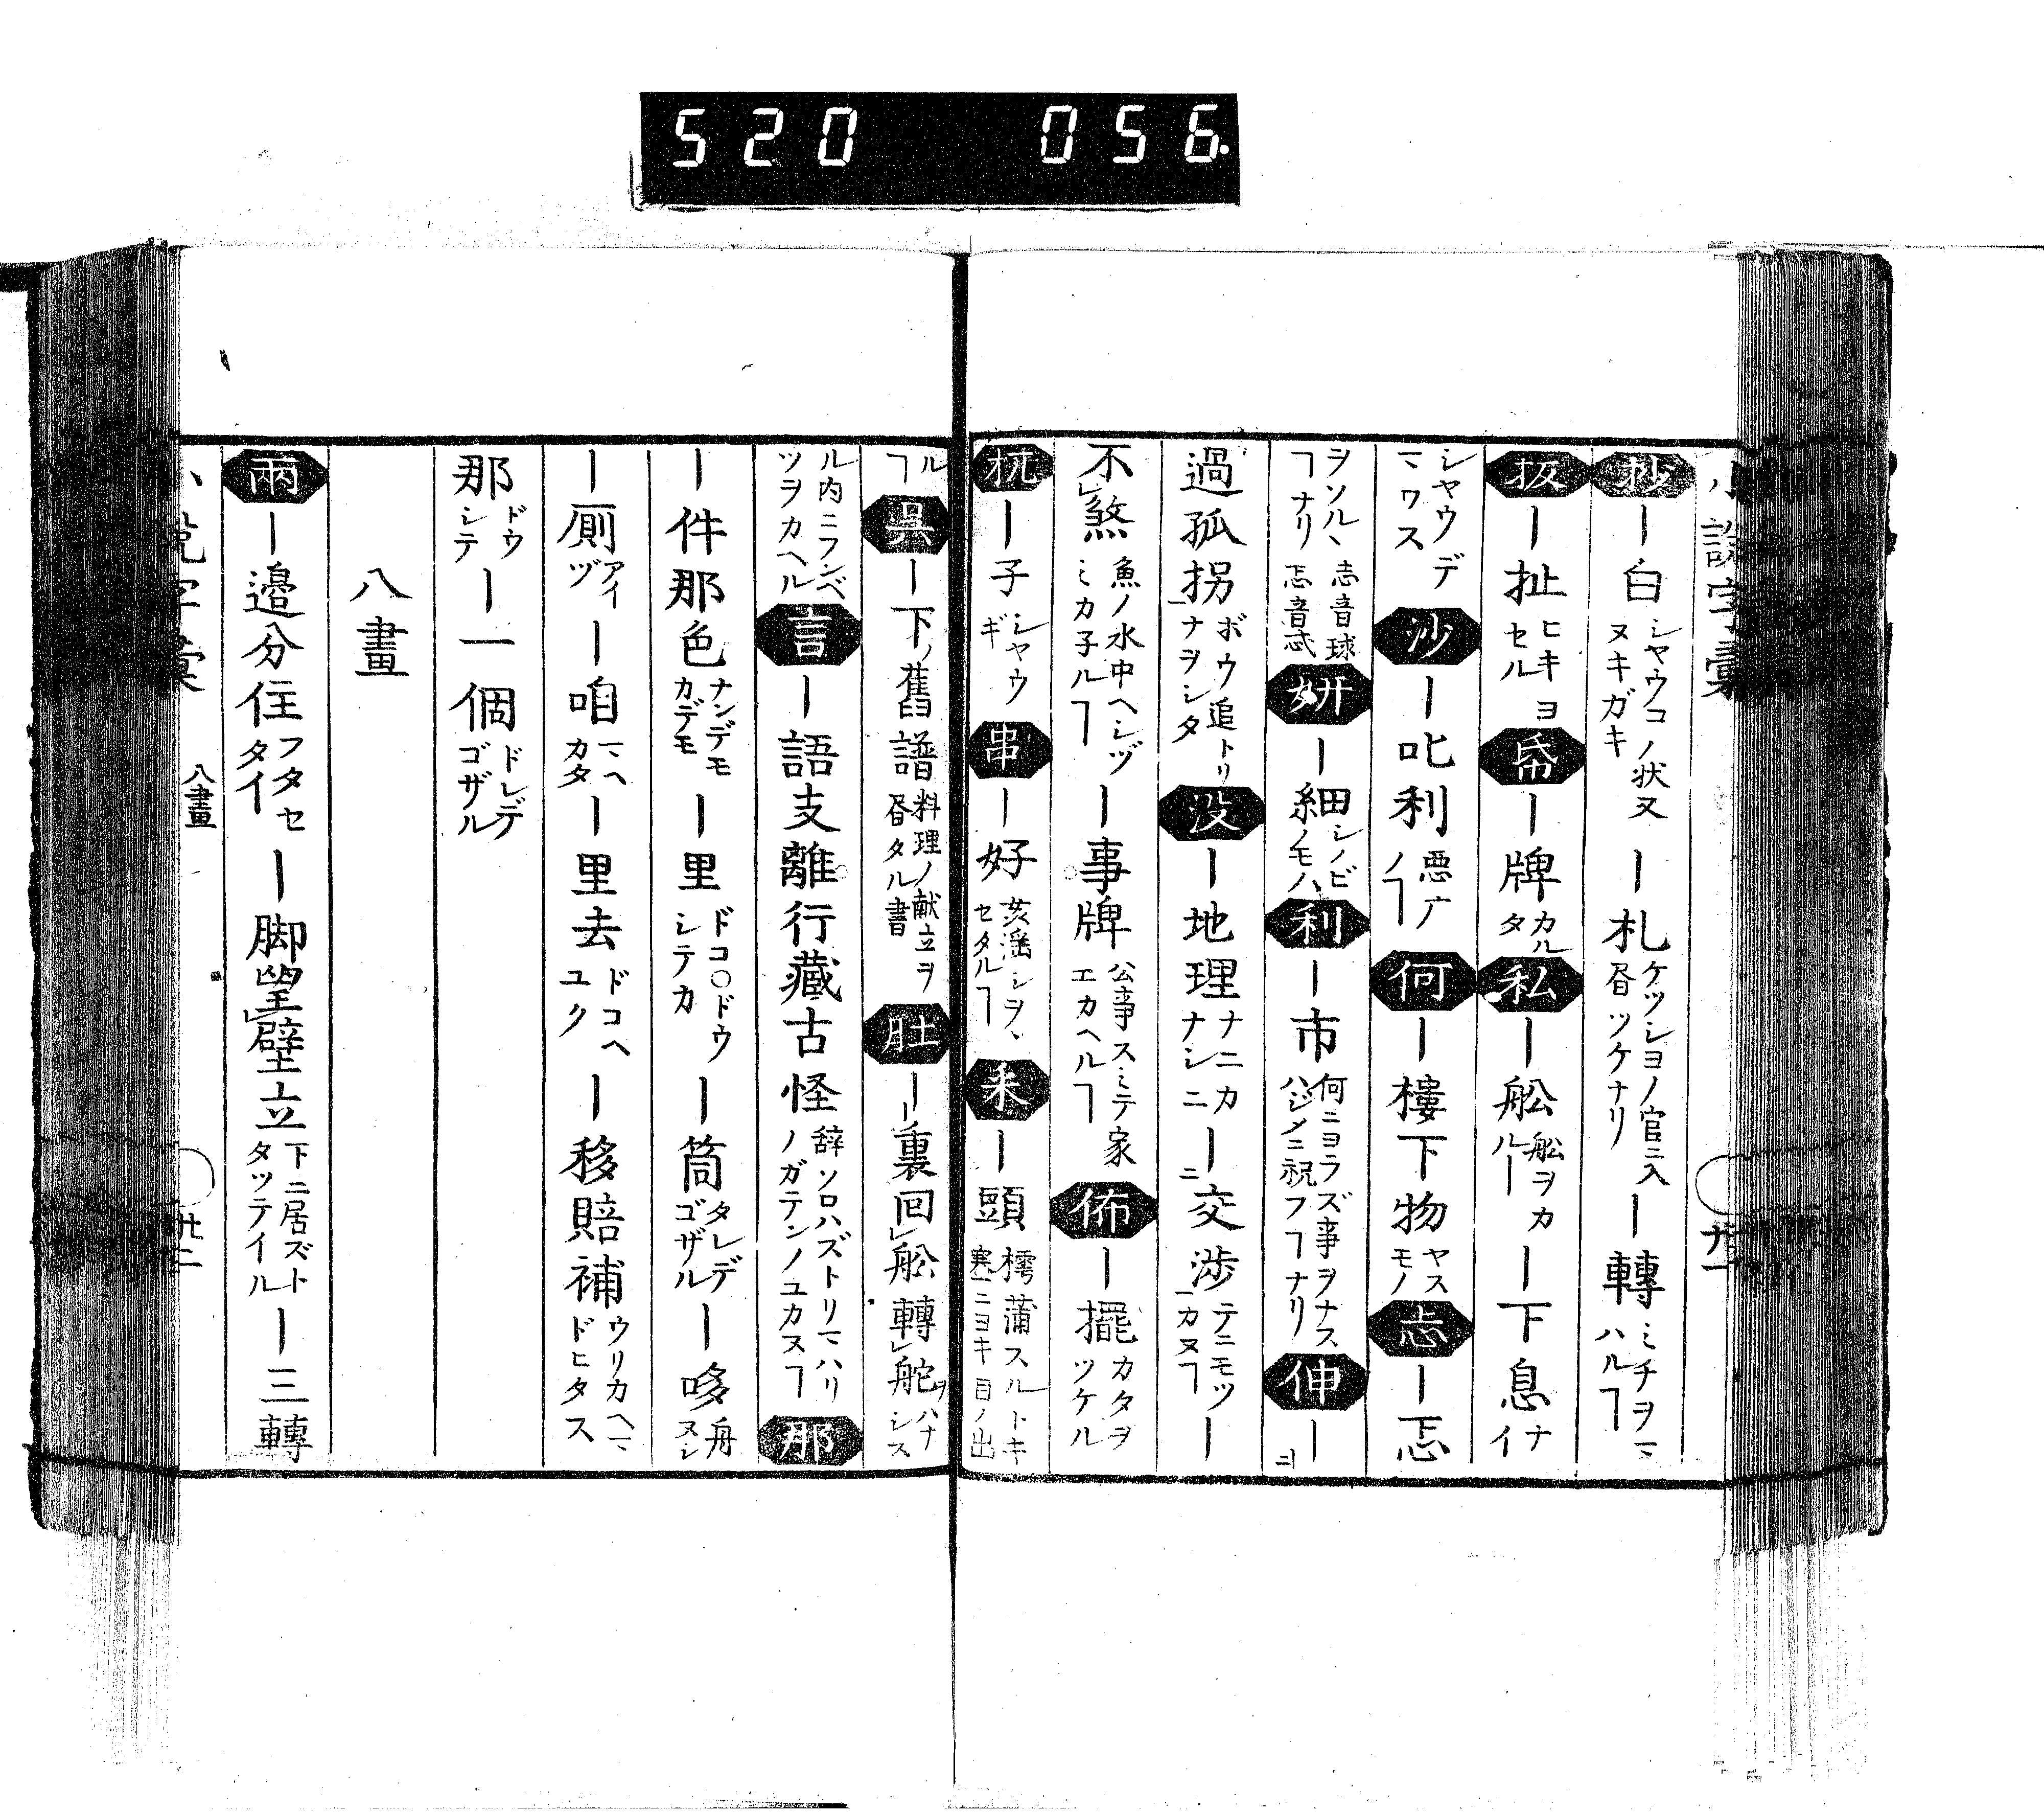 520 056.
小説字彙 廿一
抄｜白シャウコノ状又ヌキガキ｜札ケツショノ官ニ入昏ツケナリ｜轉ミチヲマヽハルヿ
扳｜扯ヒキヨセル帋｜牌カルタ私｜舩舩ヲカルー｜下息ナイ
シャウデマヽワス沙｜叱利悪广ノヿ何｜樓下物ヤスモノ忐｜忑
ヲソルヽヿナリ志音球忑音忒妍｜細シノビノモハ利｜市何ニヨラズ事ヲナスハジメニ祝フヿナリ伸｜ニ
過孤拐ボウ追トリナヲシタ没｜地理ナニカナシニ｜交渉テニモツニカヌヿ｜
不煞魚ノ水中ヘシヅミカ子ルヿ｜事牌公事スミテ家エカヘルヿ佈｜擺カタヲツケル
杌｜子シャウギ串｜好亥滛シヲヽセタルヿ釆｜頭樗蒲スルトキ塞ニヨキ目ノ出
ルヿ呉｜下ノ舊譜料理ノ献立ヲ昏タル書肚｜裏回舩轉舵ヲハナシス
ル内ニフンベツヲカヘル言｜語支離行藏古怪辞ソロハズトリマハリノガテンノユカヌヿ那
｜件那色ナンデモカデモ｜里ドコ○ドウシテカ｜筒タレデゴザル｜哆舟ヌシ
｜厠アイヅ｜咱マヽヘカタ｜里去ドコヘユク｜移賠補ウリカヘマヽドヒタス
那ドウシテ｜一個ドレデゴザル
八畫
兩｜邉分住フタセタイ｜脚望壁立下ニ居ズトタツテイル｜三轉
小説字彙 八畫 廿二